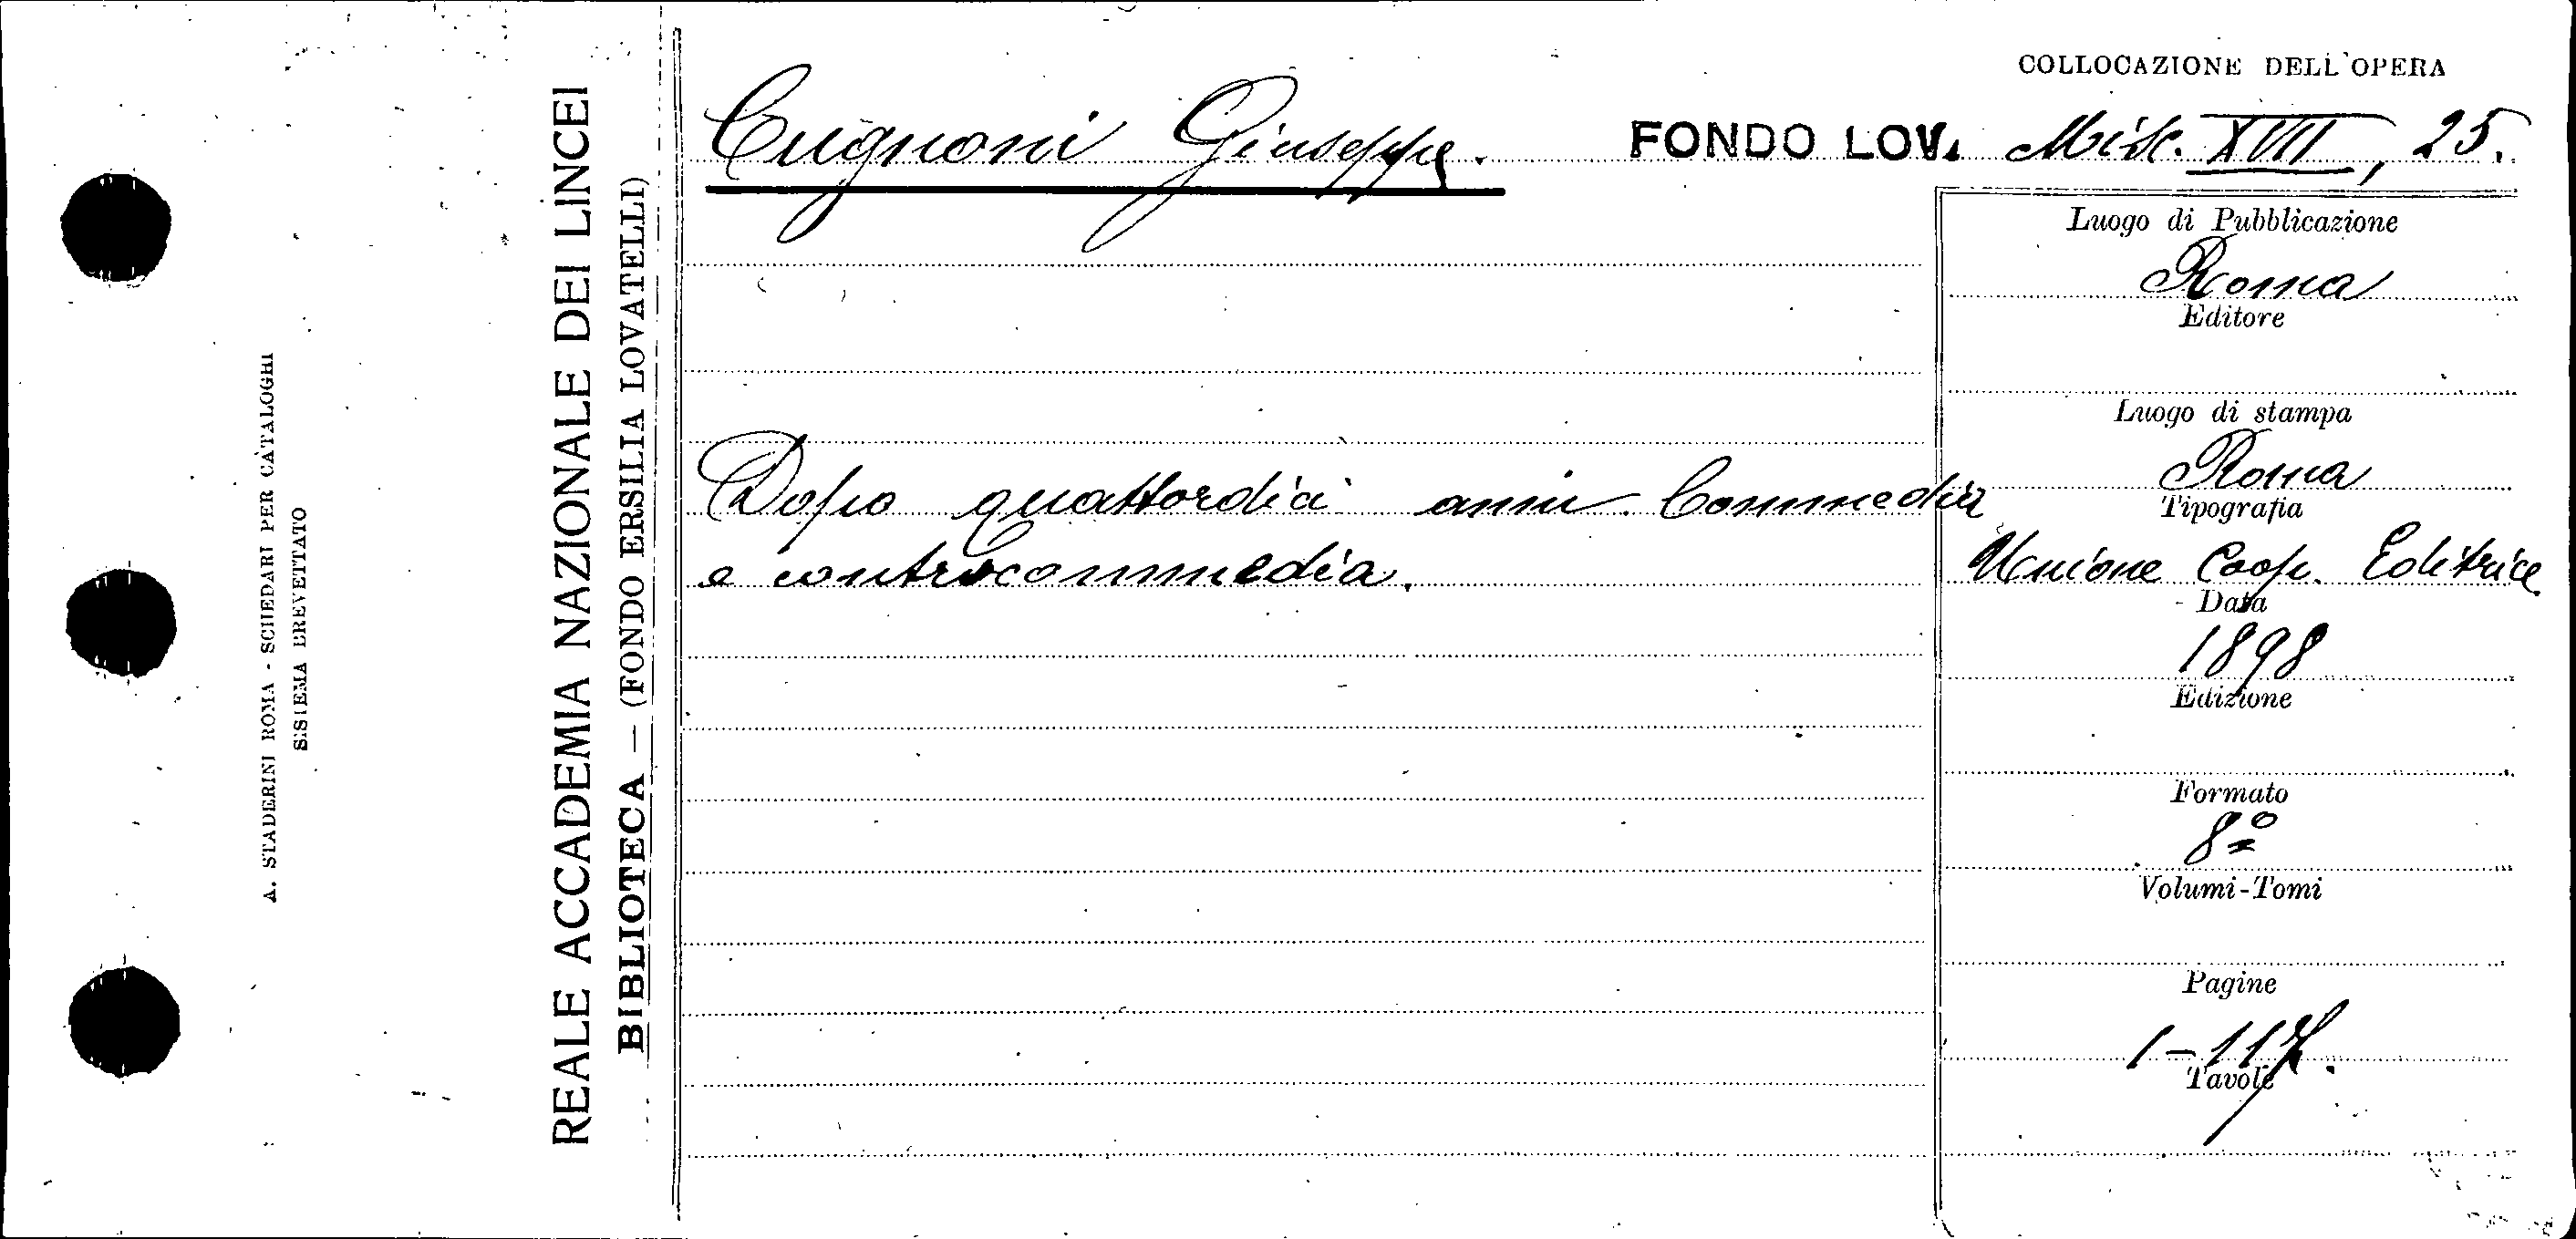 A. STADERINI ROMA - SCHEDARI PER CATALOGHI
SISTEMA BREVETTATO
REALE ACCADEMIA NAZIONALE DEI LINCEI
BIBLIOTECA — (FONDO ERSILIA LOVATELLI)
COLLOCAZIONE DELL'OPERA
Cugnoni Giuseppe.
FONDO LOV. Misc. XVII, 25.
Dopo quattordici anni. Commedia
e controcommedia.
Luogo di Pubblicazione
Roma
Editore
Luogo di stampa
Roma
Tipografia
Unione Coop. Editrice
Data
1898
Edizione
Formato
8º
Volumi-Tomi
Pagine
1-117.
Tavole